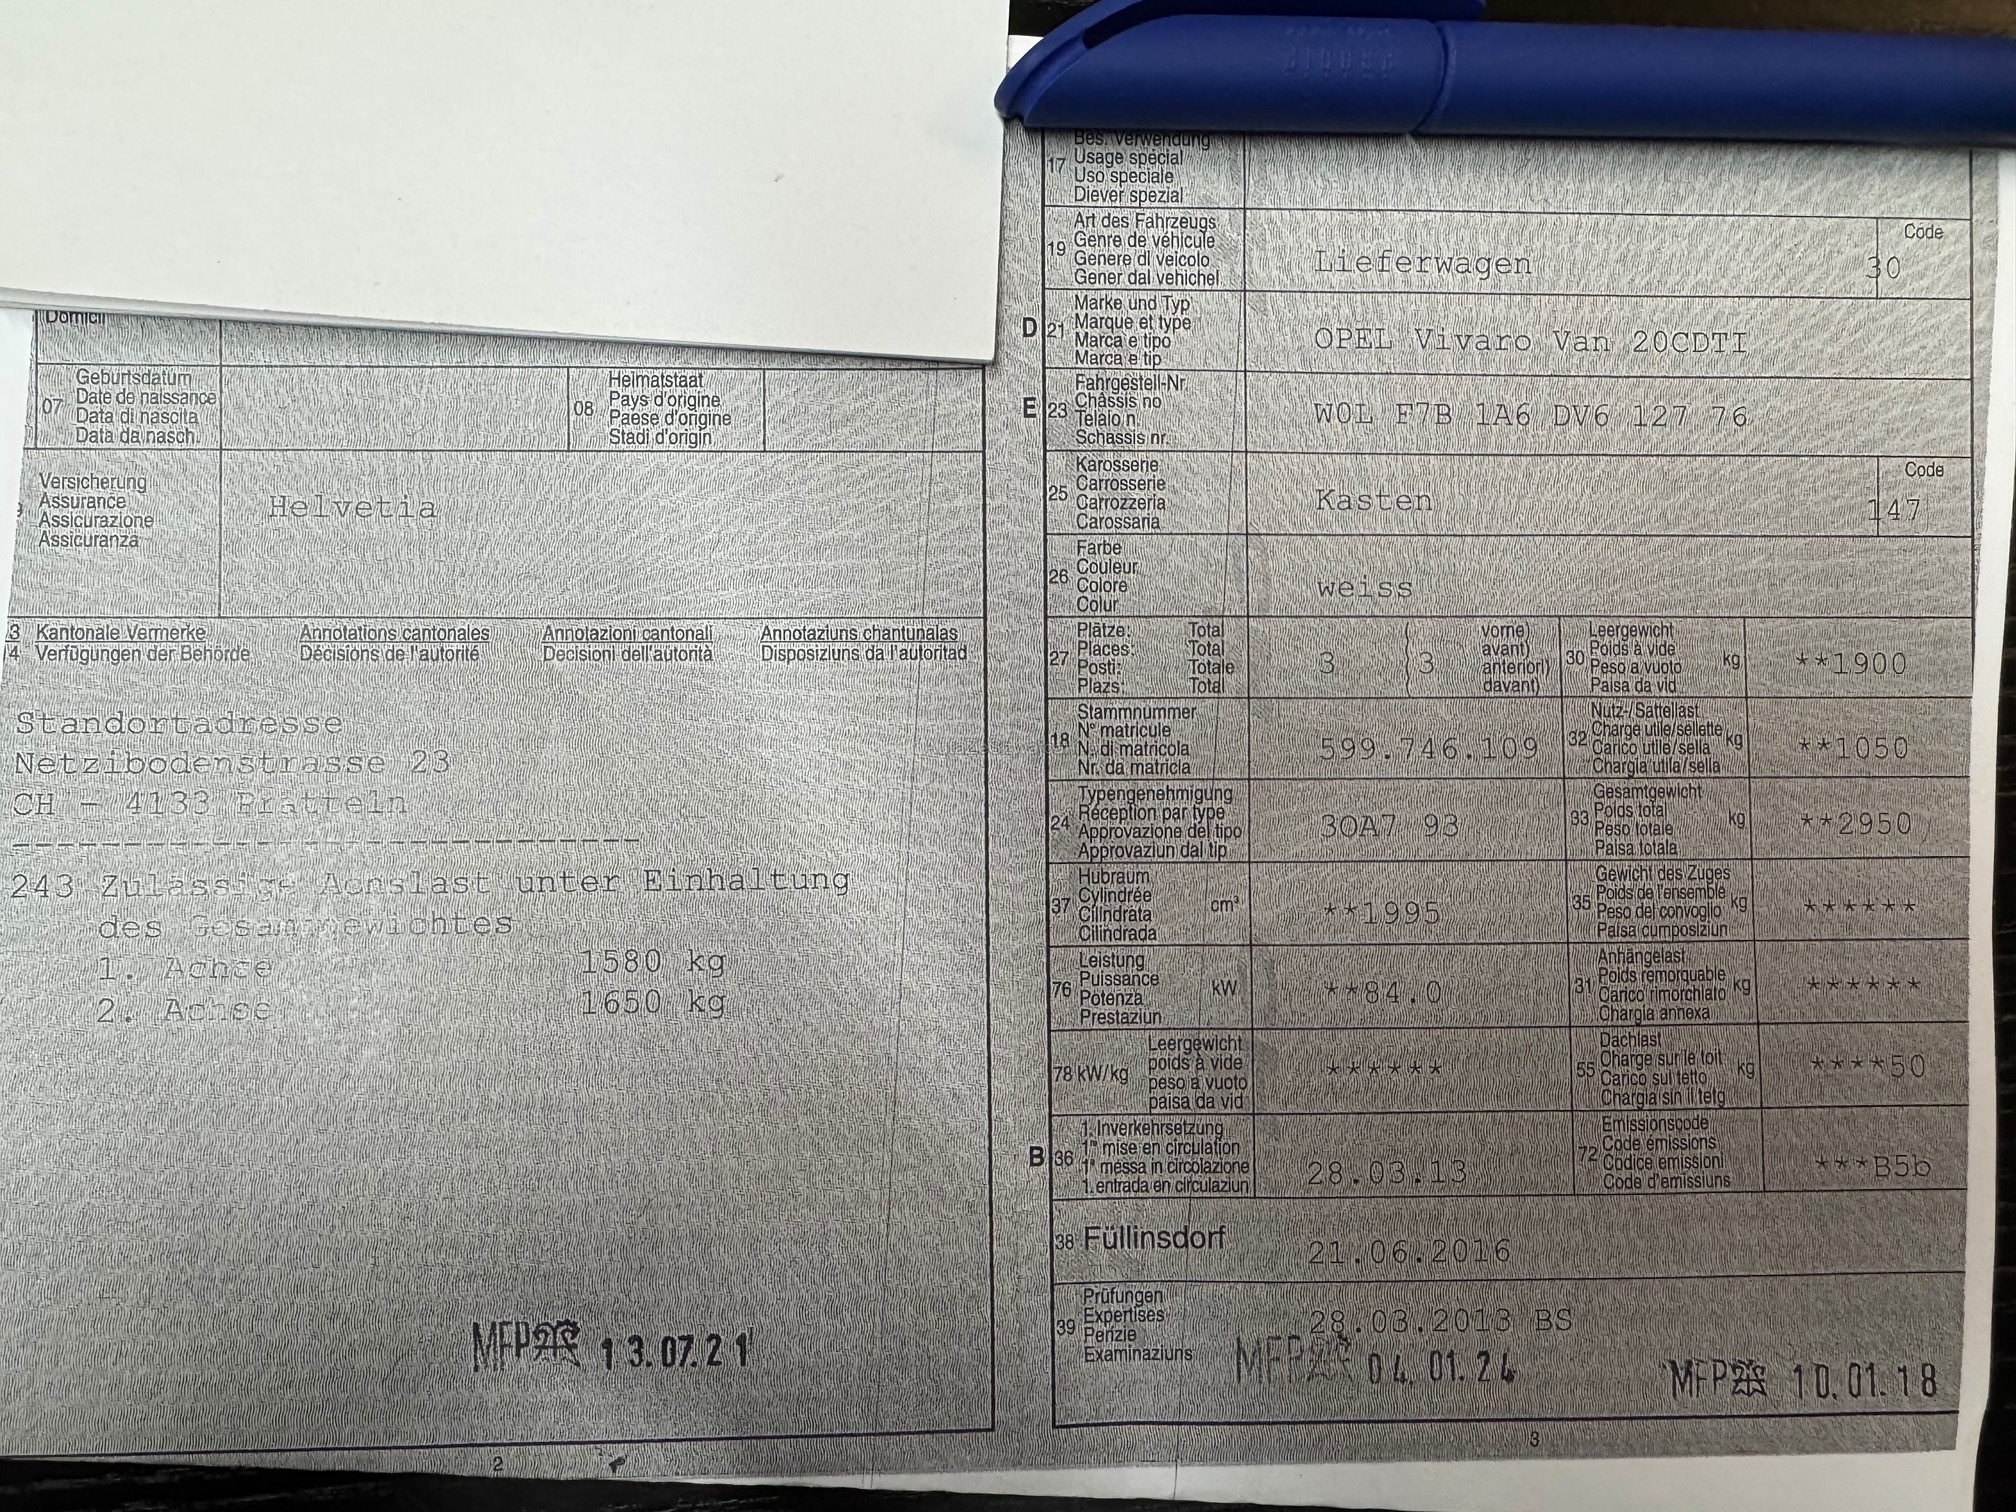 Domicil
07
Geburtsdatum
Date de naissance
Data di nascita
Data da nasch.
08
Heimatstaat
Pays d'origine
Paese d'origine
Stadi d'origin
Versicherung
Assurance
Assicurazione
Assicuranza
Helvetia
Kantonale Vermerke Annotations cantonales Annotazioni cantonali Annotaziuns chantunalas
Verfügungen der Behörde Décisions de l'autorité Decisioni dell'autorità Disposiziuns da l'autoritad
Standortadresse
Netzibodenstrasse 23
CH - 4133 Pratteln
------------------------------
243 Zulässige Achslast unter Einhaltung
des Gesamtgewichtes
1. Achse 1580 kg
2. Achse 1650 kg
MFP 13.07.21
2
17
Bes. Verwendung
Usage spécial
Uso speciale
Diever spezial
19
Art des Fahrzeugs
Genre de véhicule
Genere di veicolo
Gener dal vehichel
Lieferwagen
Code
30
D 21
Marke und Typ
Marque et type
Marca e tipo
Marca e tip
OPEL Vivaro Van 20CDTI
E 23
Fahrgestell-Nr.
Châssis no
Telaio n.
Schassis nr.
W0L F7B 1A6 DV6 127 76
25
Karosserie
Carrosserie
Carrozzeria
Carossaria
Kasten
Code
147
26
Farbe
Couleur
Colore
Colur
weiss
27
Plätze: Total
Places: Total
Posti: Totale
Plazs: Total
3 ( 3
vorne)
avant)
anteriori)
davant)
30
Leergewicht
Poids à vide
Peso a vuoto
Paisa da vid
kg
**1900
18
Stammnummer
N° matricule
N. di matricola
Nr. da matricla
599.746.109
32
Nutz-/Sattellast
Charge utile/sellette
Carico utile/sella
Chargia utila/sella
kg
**1050
24
Typengenehmigung
Réception par type
Approvazione del tipo
Approvaziun dal tip
3OA7 93
33
Gesamtgewicht
Poids total
Peso totale
Paisa totala
kg
**2950
37
Hubraum
Cylindrée
Cilindrata
Cilindrada
cm³
**1995
35
Gewicht des Zuges
Poids de l'ensemble
Peso del convoglio
Paisa cumposiziun
kg
******
76
Leistung
Puissance
Potenza
Prestaziun
kW
**84.0
31
Anhängelast
Poids remorquable
Carico rimorchiato
Chargia annexa
kg
******
78 kW/kg
Leergewicht
poids à vide
peso a vuoto
paisa da vid
******
55
Dachlast
Charge sur le toit
Carico sul tetto
Chargia sin il tetg
kg
****50
B 36
1. Inverkehrsetzung
1re mise en circulation
1a messa in circolazione
1. entrada en circulaziun
28.03.13
72
Emissionscode
Code émissions
Codice emissioni
Code d'emissiuns
***B5b
38 Füllinsdorf 21.06.2016
39
Prüfungen
Expertises
Perizie
Examinaziuns
28.03.2013 BS
MFP 04.01.24
MFP 10.01.18
3